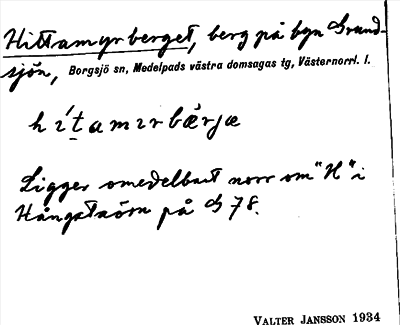 Hittamyrberget, berg på byn Grund-
sjön, Borgsjö sn, Medelpads västra domsagas tg, Västernorrl. l.
hítamırbǽrjæ
Ligger omedelbart norr om "H" i
Hångstaörn på G 78.
VALTER JANSSON 1934